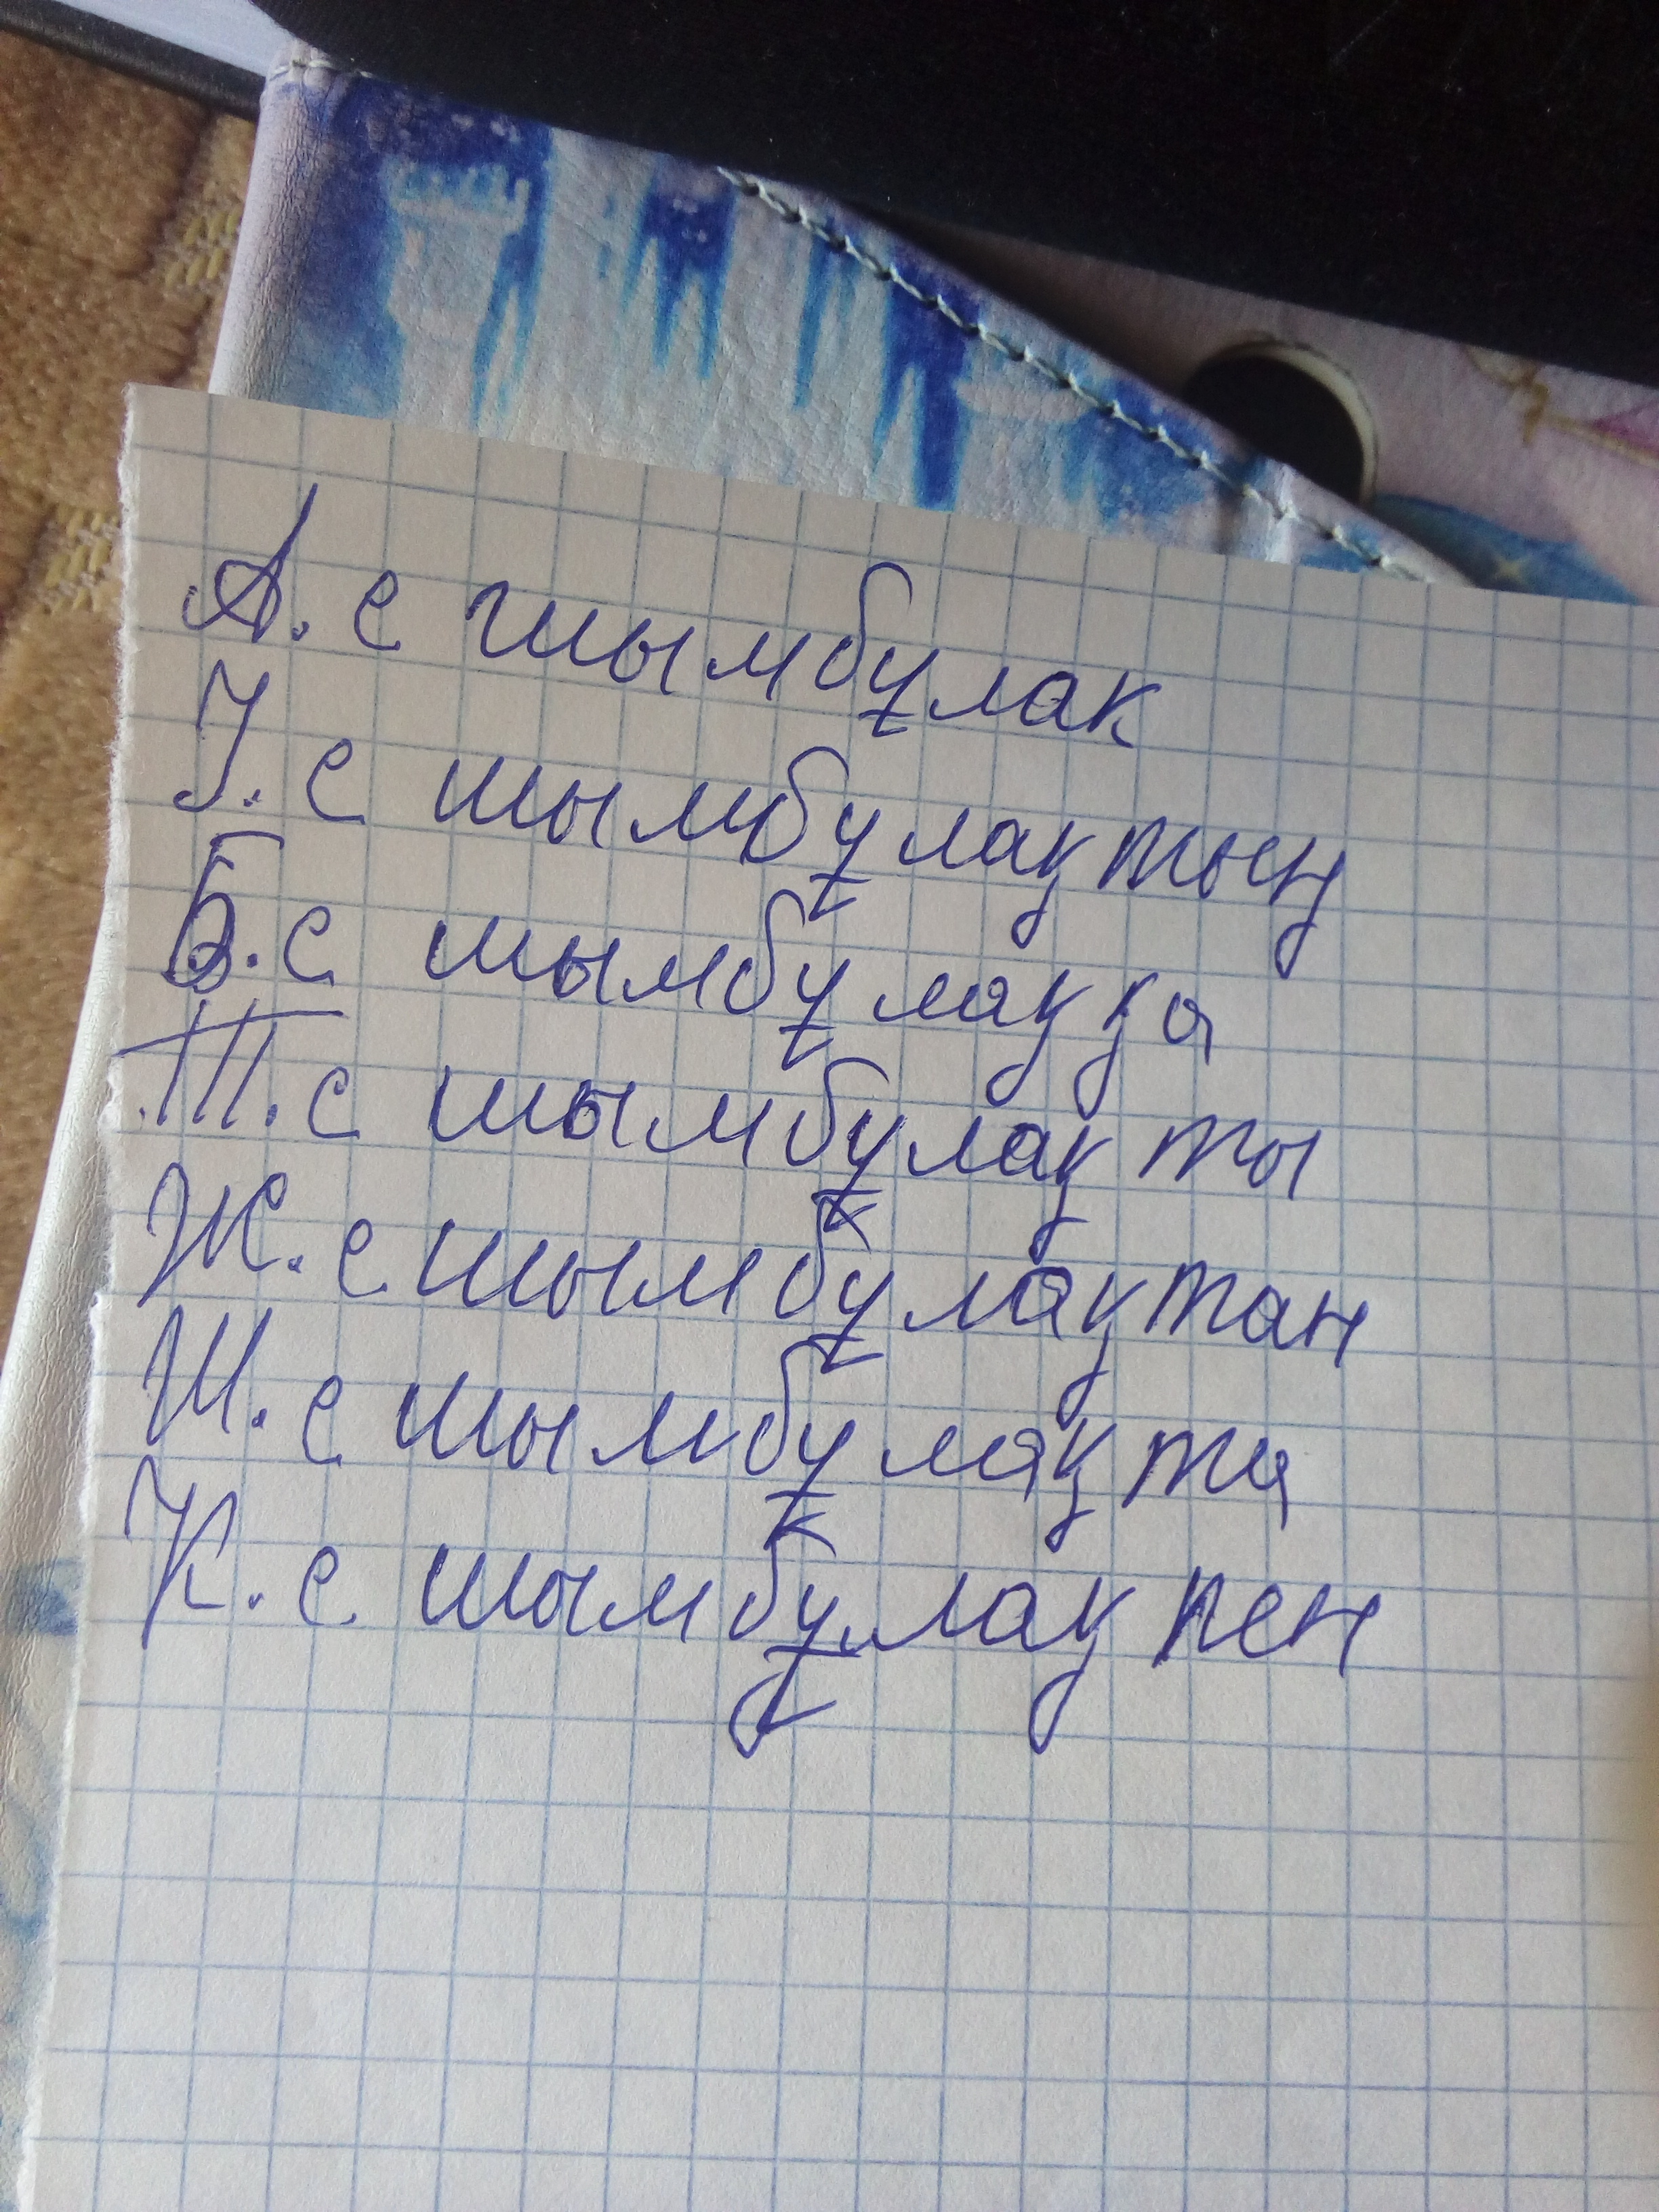 А. с шымбұлак
І. с шымбұлақтың
Б. с шымбұлаққа
Т. с шымбұлақты
Ж. с шымбұлақтан
Ш. с шымбұлақта
К. с шымбұлақпен